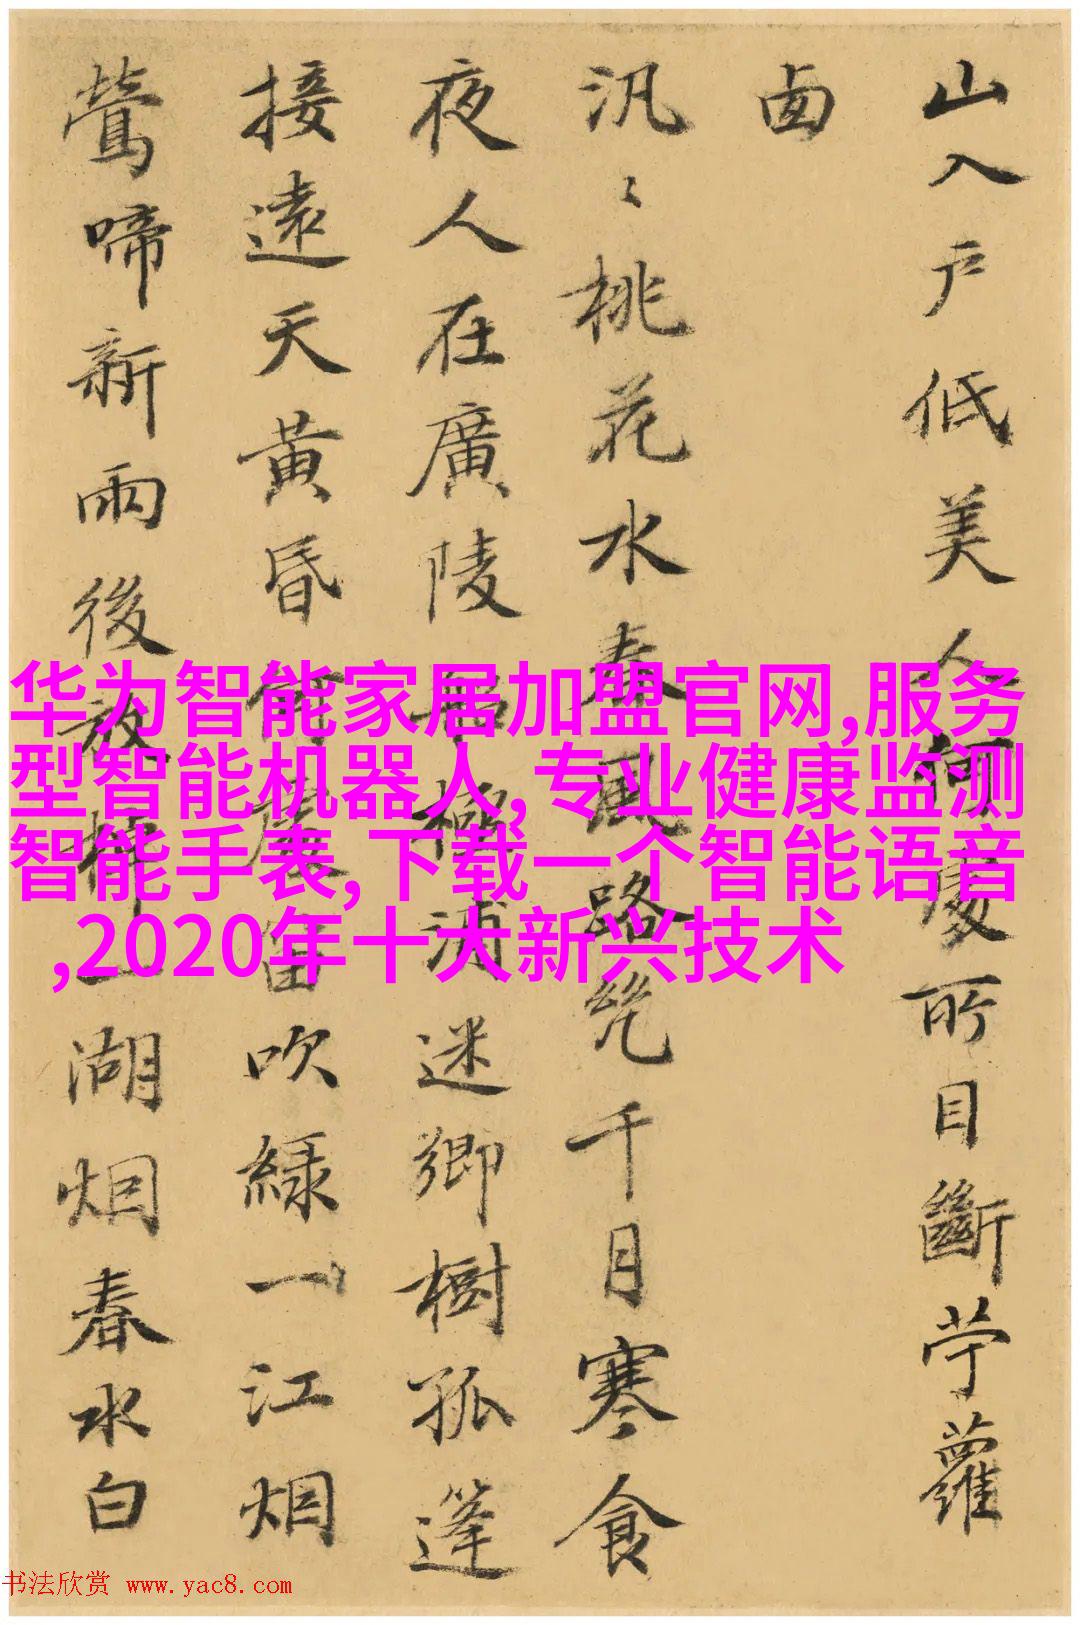 山入戶低美人何處所目斷苧蘿
卥
汎〻桃花水春風路幾千月寒食
夜人在廣陵船極浦迷鄉樹孤篷
接遠天黃昏何處笛吹綠一江烟
鶯啼新雨後放棹一湖烟春水白
华为智能家居加盟官网,服务
型智能机器人,专业健康监测
智能手表,下载一个智能语音
,2020年十大新兴技术
书法欣赏 www.yac8.com